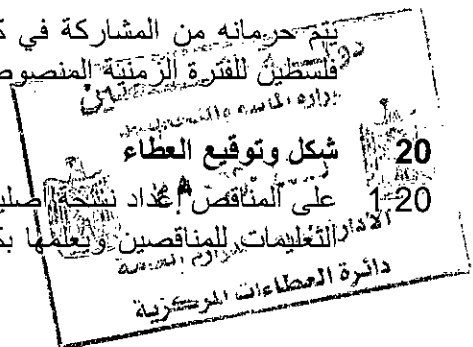 يتم حرمانه من المشاركة في
فلسطين للفترة الزمنية
20 شكل وتوقيع العطاء
1-20 على المناقص إعداد نسخة
التعليمات للمناقصين
دائرة العطاءات المركزية